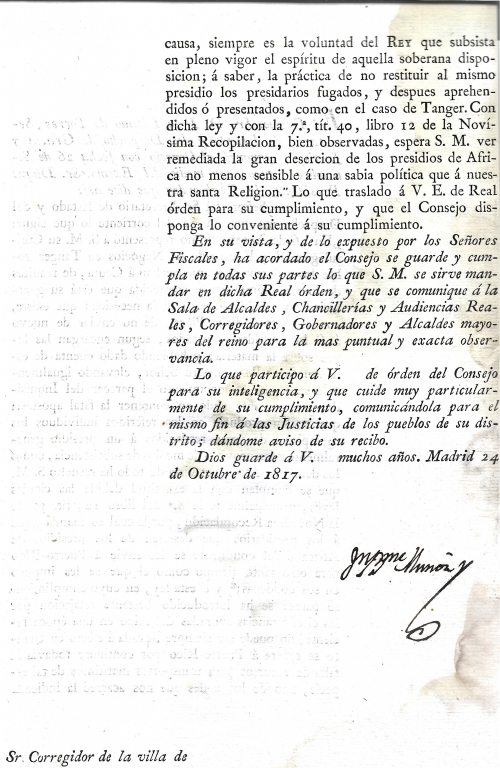 causa, siempre es la voluntad del REY que subsista
en pleno vigor el espíritu de aquella soberana dispo-
sicion; á saber, la práctica de no restituir al mismo
presidio los presidarios fugados, y despues aprehen-
didos ó presentados, como en el caso de Tanger. Con
dicha ley y con la 7.ª, tít. 40, libro 12 de la Noví-
sima Recopilacion, bien observadas, espera S. M. ver
remediada la gran desercion de los presidios de Afri-
ca no menos sensible á una sabia política que á nues-
tra santa Religion." Lo que traslado á V. E. de Real
órden para su cumplimiento, y que el Consejo dis-
ponga lo conveniente á su cumplimiento.
En su vista, y de lo expuesto por los Señores
Fiscales, ha acordado el Consejo se guarde y cum-
pla en todas sus partes lo que S. M. se sirve man-
dar en dicha Real órden, y que se comunique á la
Sala de Alcaldes, Chancillerías y Audiencias Rea-
les, Corregidores, Gobernadores y Alcaldes mayo-
res del reino para la mas puntual y exacta obser-
vancia.
Lo que participo á V. de órden del Consejo
para su inteligencia, y que cuide muy particular-
mente de su cumplimiento, comunicándola para el
mismo fin á las Justicias de los pueblos de su dis-
trito; dándome aviso de su recibo.
Dios guarde á V. muchos años. Madrid 24
de Octubre de 1817.
Muñoz
Sr. Corregidor de la villa de